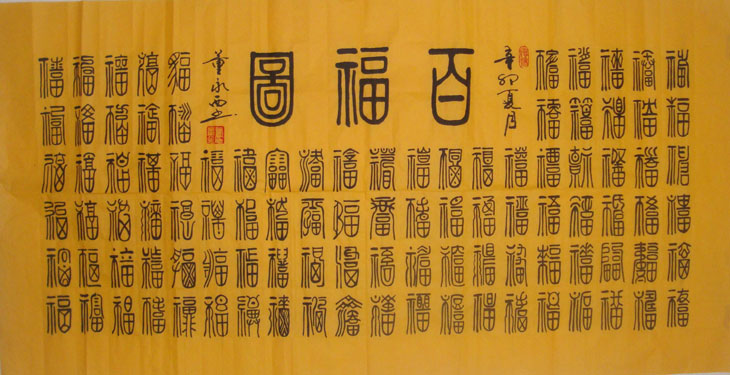 百福圖
辛卯夏月
福福福福福
福福福福福
福福福福福
福福福福福
福福福福福福福福福福福福福福福福福福福福
福福福福福福福福福福福福福福福福福福福福
福福福福福福福福福福福福福福福福福福福福
福福福福福福福福福福福福福福福福福福福福
董永西书